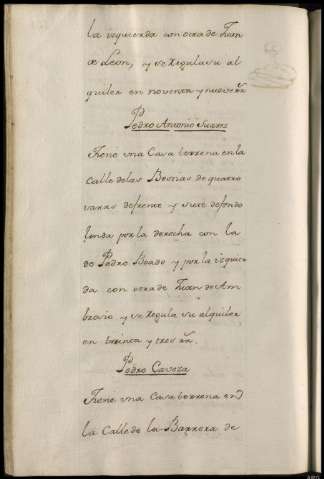 la izquierda con otra de Juan
de Leon, y se regula su al
quiler en noventa y nueve rs
Pedro Antonio Suarez
Tiene una Casa terrena en la
Calle de las Bestias de quatro
varas de frente y siete de fondo
linda por la derecha con la
de Pedro Boado y por la izquier
da con otra de Juan de Am
brosio y se regula su alquiler
en treinta y tres rs.
Pedro Caveza
Tiene una Casa terrena en
la Calle de la Barrera de